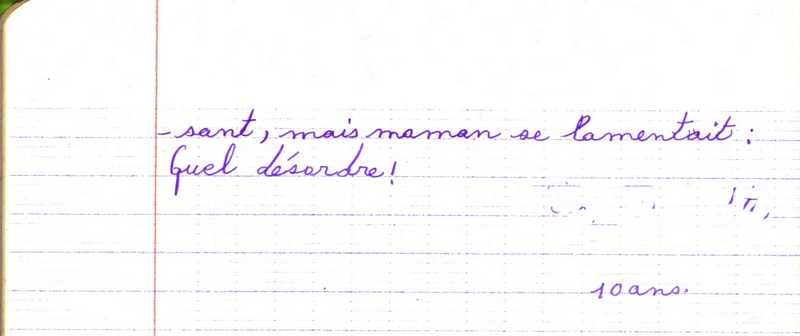 -sant, mais maman se lamentait :
Quel désordre !
10 ans.